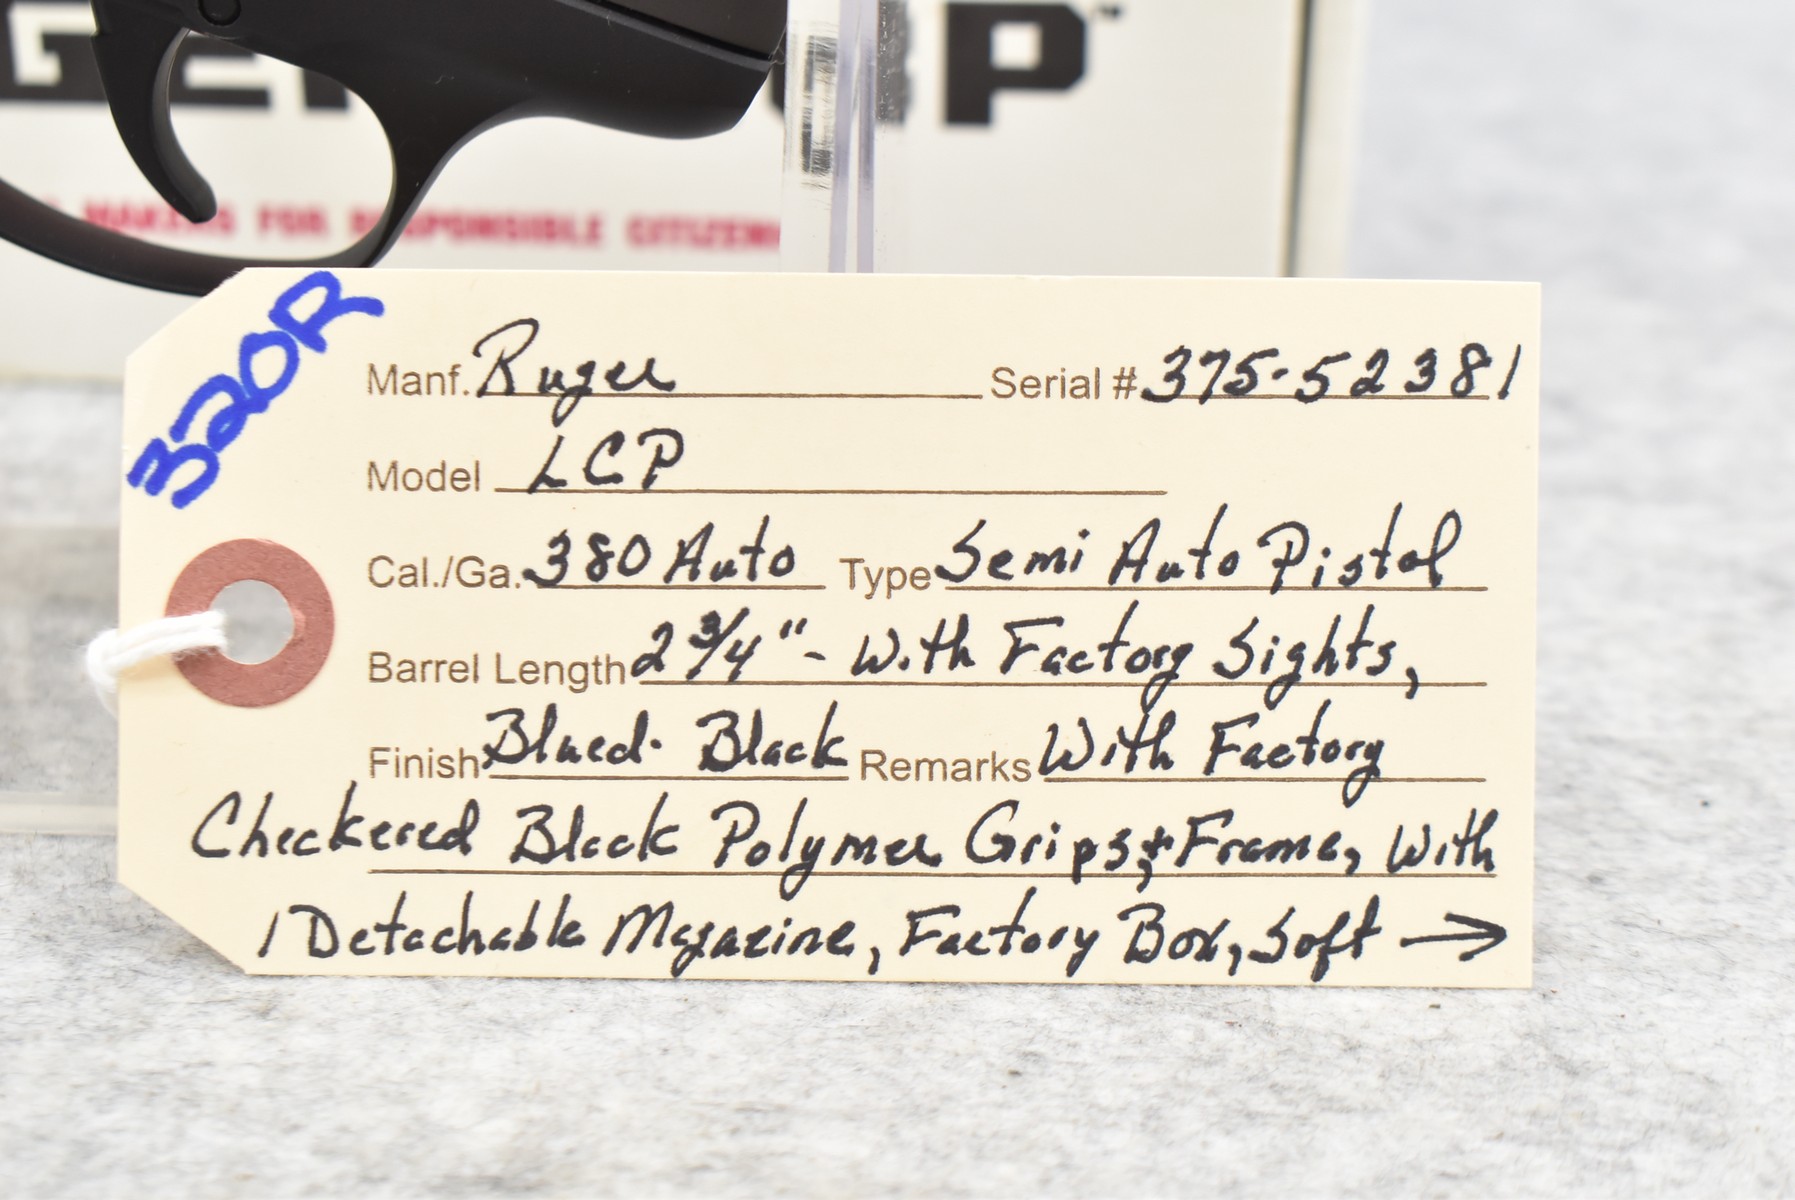 P™
MAKING FOR RESPONSIBLE CITIZEN
320R
Manf. Ruger Serial # 375-52381
Model LCP
Cal./Ga. 380 Auto Type Semi Auto Pistol
Barrel Length 2 3/4" - With Factory Sights,
Finish Blued - Black Remarks With Factory
Checkered Black Polymer Grips, + Frame, With
1 Detachable Magazine, Factory Box, Soft →